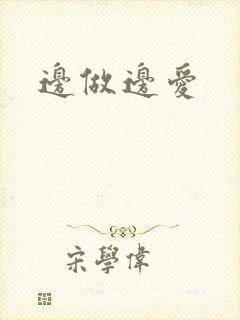 邊做邊愛
宋學偉